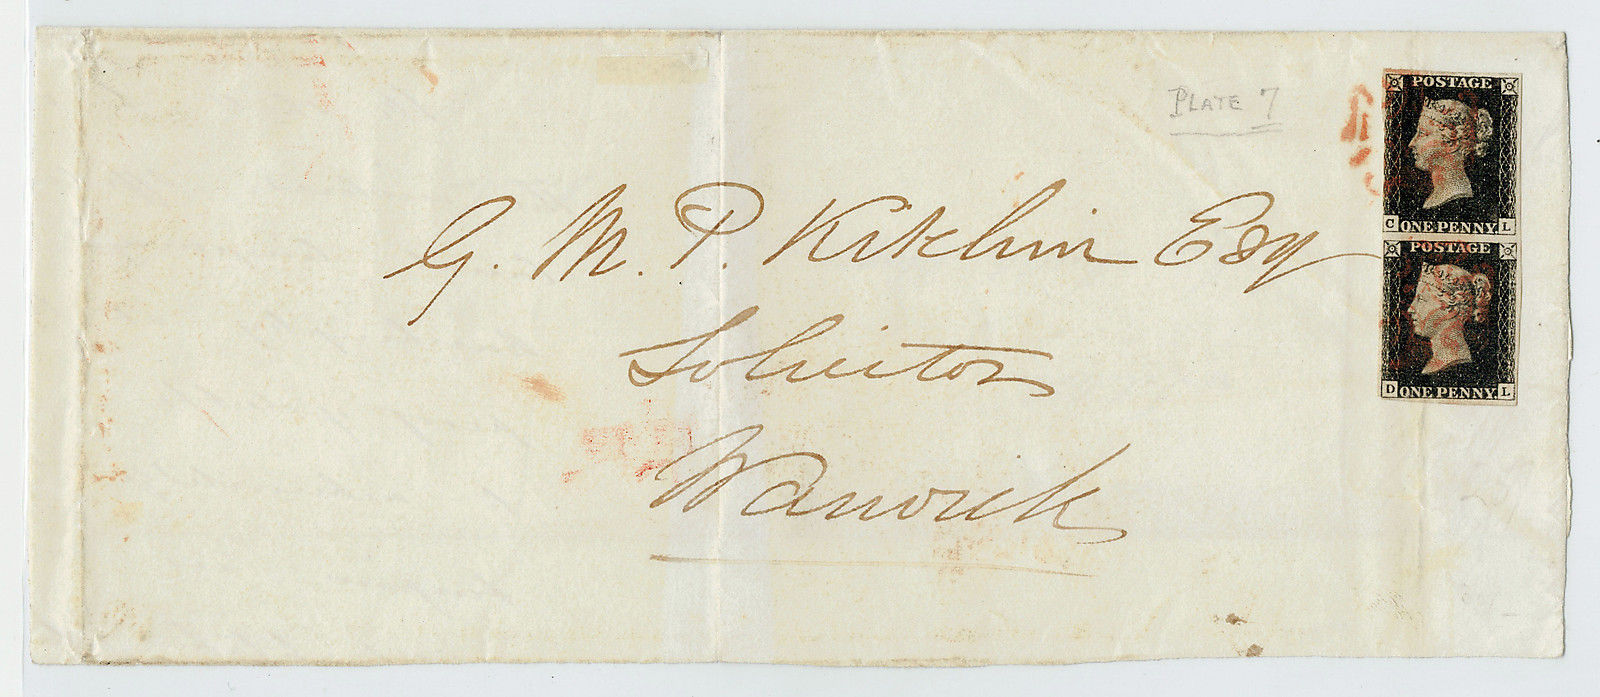 PLATE 7
G. M. P. Kitchin Esq
Solicitor
Warwick
POSTAGE
C ONE PENNY L
POSTAGE
D ONE PENNY L